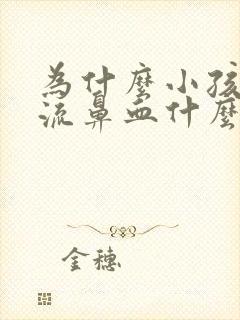 為什麼小孩
流鼻血什麼
金穗